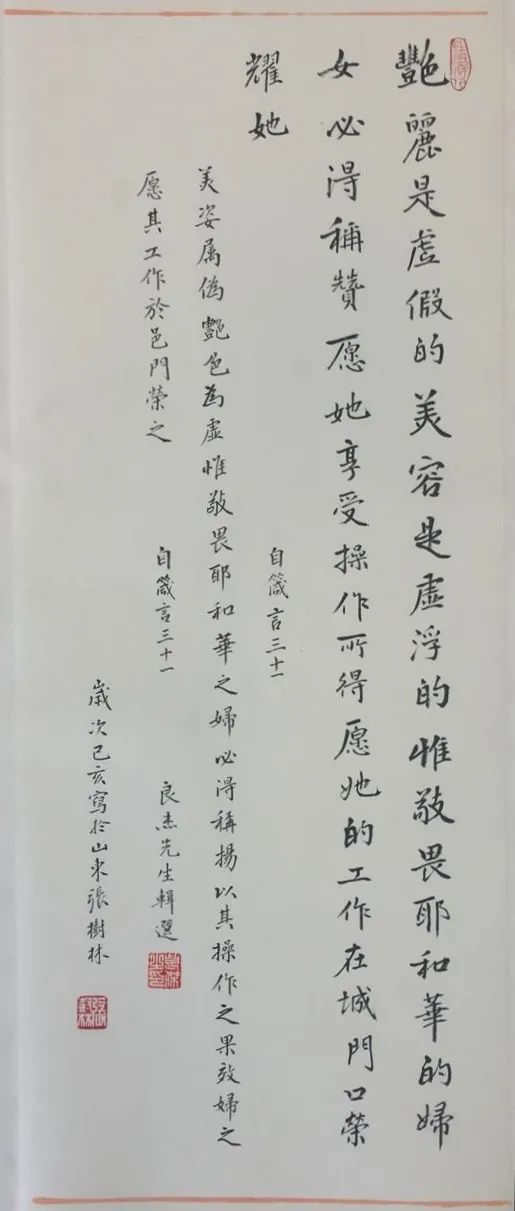 艷麗是虛假的美容是虛浮的惟敬畏耶和華的婦
女必得稱贊愿她享受操作所得愿她的工作在城門口榮
耀她
自箴言三十一
美姿属偽艷色為虛惟敬畏耶和華之婦必得稱揚以其操作之果效婦之
愿其工作於邑門榮之
自箴言三十一
良杰先生輯選
歲次己亥寫於山东張樹林